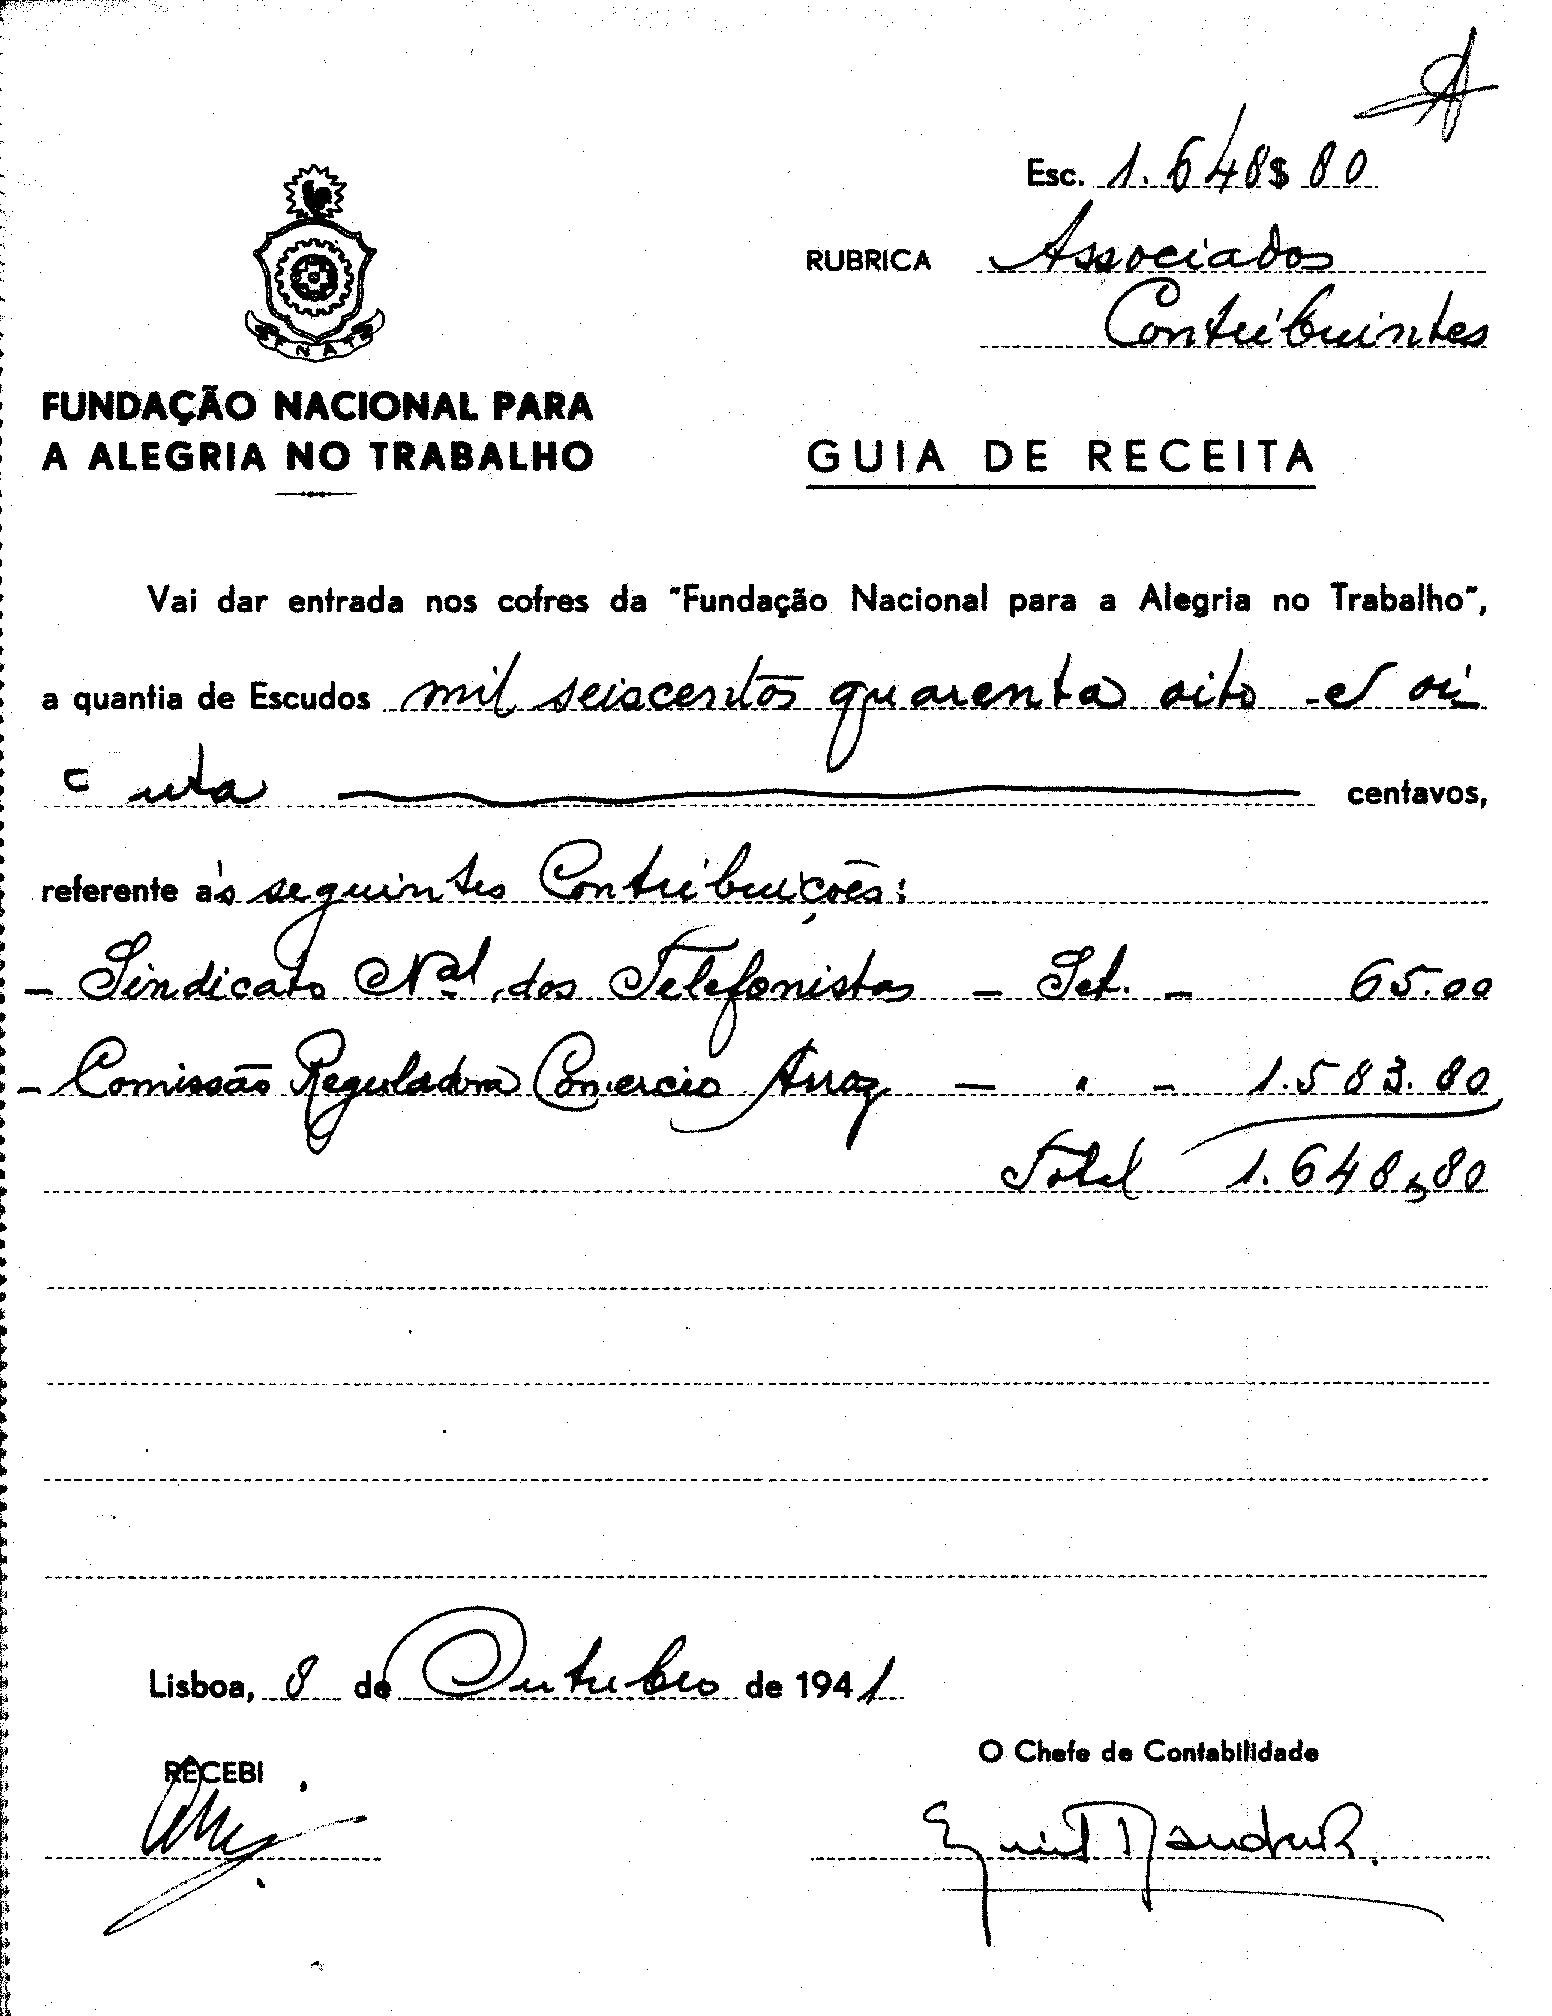 Esc. 1.648$80
RUBRICA Associados
Contribuintes
FENAT
FUNDAÇÃO NACIONAL PARA
A ALEGRIA NO TRABALHO
GUIA DE RECEITA
Vai dar entrada nos cofres da "Fundação Nacional para a Alegria no Trabalho",
a quantia de Escudos mil seiscentos quarenta oito e oi
centa centavos,
referente às seguintes Contribuições:
- Sindicato Nal dos Telefonistas - Set. - 65.00
- Comissão Reguladora Comercio Arroz - " - 1.583.80
Total 1.648,80
Lisboa, 8 de Outubro de 1941
RECEBI
O Chefe de Contabilidade